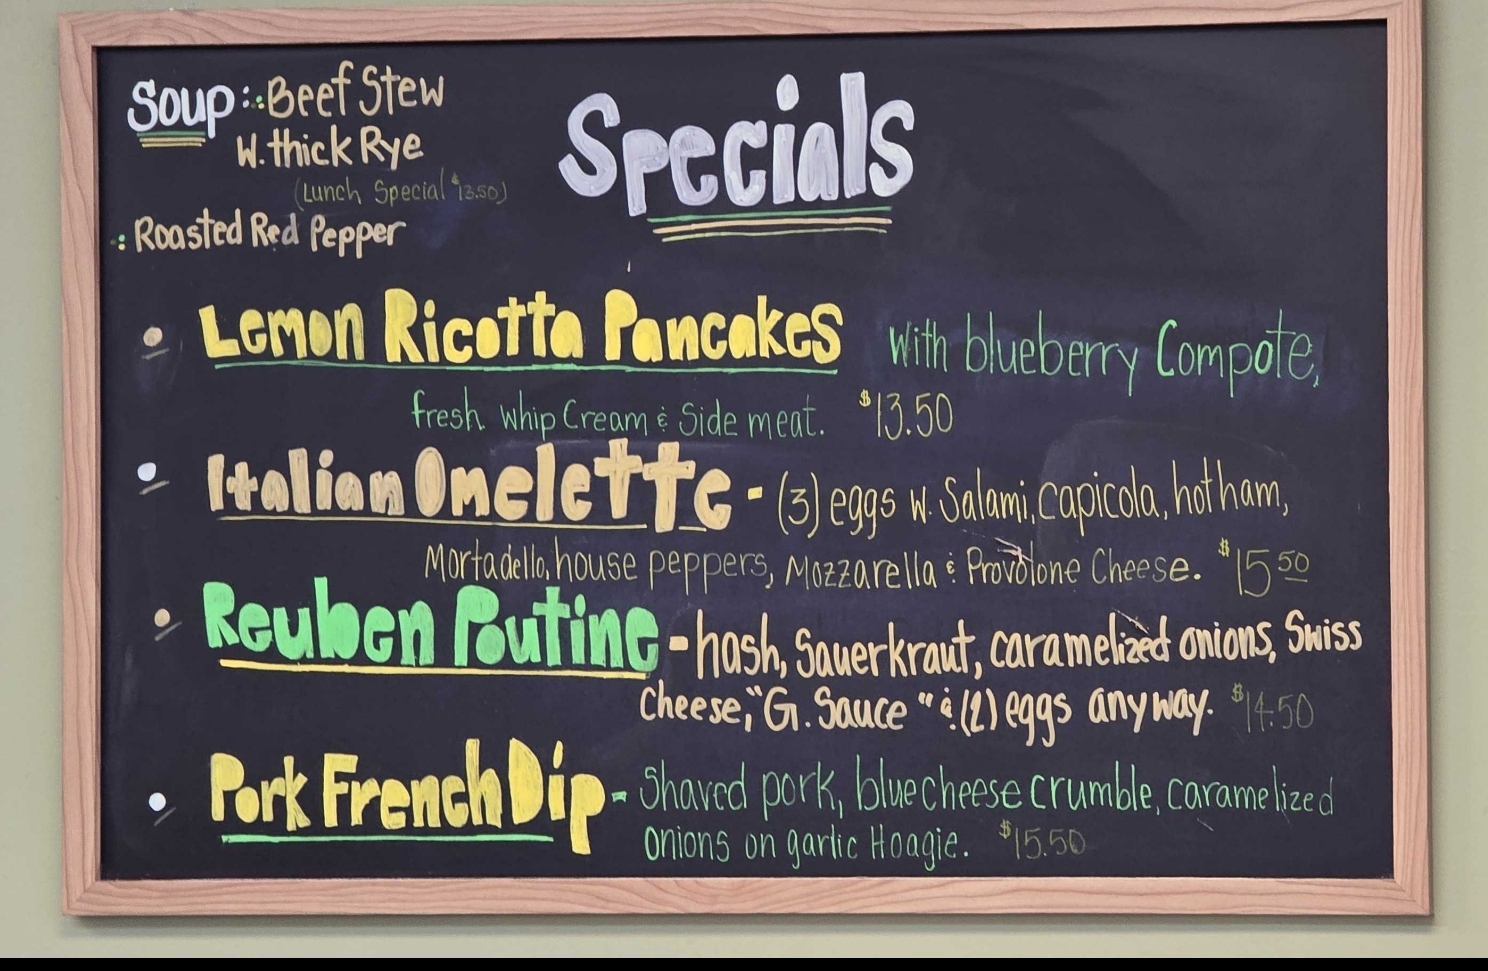 Soup: Beef Stew
W. thick Rye
(Lunch Special $13.50)
: Roasted Red Pepper
Specials
• Lemon Ricotta Pancakes with blueberry Compote,
fresh whip Cream & Side meat. $13.50
• Italian Omelette - (3) eggs w. Salami, Capicola, hot ham,
Mortadello, house peppers, Mozzarella & Provolone Cheese. $15 50
• Reuben Poutine - hash, Sauerkraut, caramelized onions, Swiss
Cheese, "G. Sauce" & (2) eggs any way. $14.50
• Pork French Dip - Shaved pork, blue cheese crumble, caramelized
Onions on garlic Hoagie. $15.50